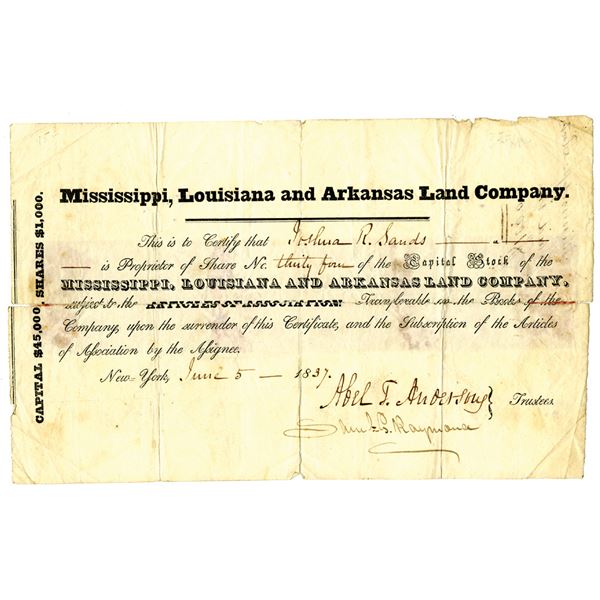 CAPITAL $45,000, SHARES $1,000.
Mississippi, Louisiana and Arkansas Land Company.
This is to Certify that Joshua R. Sands
is Proprietor of Share No. thirty four of the Capital Stock of the
MISSISSIPPI, LOUISIANA AND ARKANSAS LAND COMPANY,
subject to the ARTICLES OF ASSOCIATION Transferable in the Books of the
Company, upon the surrender of this Certificate, and the Subscription of the Articles
of Association by the Assignee.
New-York, June 5 — 1837.
Abel T. Anderson
Trustees
Saml. G. Raymond